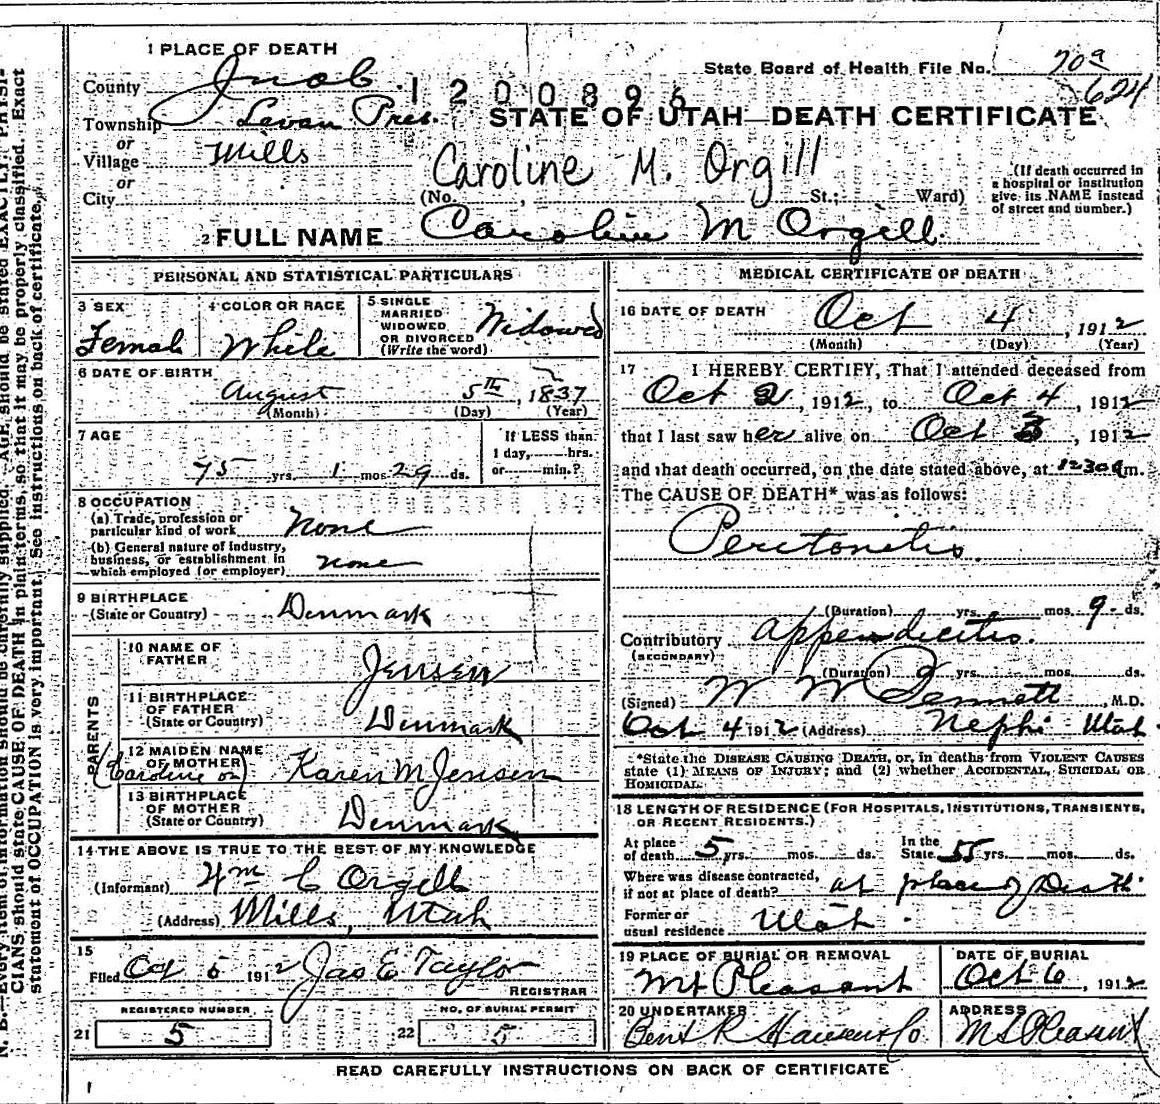 N. B.—Every item of information should be carefully supplied. AGE should be stated EXACTLY. PHYSI-
CIANS should state CAUSE OF DEATH in plain terms, so that it may be properly classified. Exact
statement of OCCUPATION is very important. See instructions on back of certificate.
1 PLACE OF DEATH
County Juab
1200896
State Board of Health File No. 209
624
Township Levan Prec.
STATE OF UTAH—DEATH CERTIFICATE
or
Village Mills
Caroline M. Orgill
or
City
(No. St.; Ward)
(If death occurred in
a hospital or institution
give its NAME instead
of street and number.)
2 FULL NAME Caroline M Orgill
PERSONAL AND STATISTICAL PARTICULARS
3 SEX
Female
4 COLOR OR RACE
White
5 SINGLE
MARRIED
WIDOWED
OR DIVORCED
(Write the word)
Widowed
6 DATE OF BIRTH
August 5th, 1837
(Month) (Day) (Year)
7 AGE
75 yrs. 1 mos. 29 ds.
If LESS than
1 day, hrs.
or min.?
8 OCCUPATION
(a) Trade, profession or
particular kind of work None
(b) General nature of industry,
business, or establishment in
which employed (or employer) none
9 BIRTHPLACE
(State or Country) Denmark
PARENTS
10 NAME OF
FATHER
Jensen
11 BIRTHPLACE
OF FATHER
(State or Country) Denmark
12 MAIDEN NAME
OF MOTHER
(Caroline on) Karen M Jensen
13 BIRTHPLACE
OF MOTHER
(State or Country) Denmark
14 THE ABOVE IS TRUE TO THE BEST OF MY KNOWLEDGE
(Informant) Wm C Orgill
(Address) Mills, Utah
15
Filed Oct 5 1912 Jas E Taylor
REGISTRAR
REGISTERED NUMBER
21 5
NO. OF BURIAL PERMIT
22 5
MEDICAL CERTIFICATE OF DEATH
16 DATE OF DEATH
Oct 4, 1912
(Month) (Day) (Year)
17 I HEREBY CERTIFY, That I attended deceased from
Oct 2, 1912, to Oct 4, 1912
that I last saw her alive on Oct 3, 1912
and that death occurred, on the date stated above, at 1230 am.
The CAUSE OF DEATH* was as follows:
Peritonitis
(Duration) yrs. mos. 9 ds.
Contributory appendicitis.
(SECONDARY)
(Duration) yrs. mos. ds.
(Signed) W W , M.D.
Oct 4 1912 (Address) Nephi Utah
*State the DISEASE CAUSING DEATH, or, in deaths from VIOLENT CAUSES
state (1) MEANS OF INJURY; and (2) whether ACCIDENTAL, SUICIDAL OR
HOMICIDAL.
18 LENGTH OF RESIDENCE (FOR HOSPITALS, INSTITUTIONS, TRANSIENTS,
OR RECENT RESIDENTS.)
At place
of death 5 yrs. mos. ds.
In the
State 55 yrs. mos. ds.
Where was disease contracted,
if not at place of death? at place of Death
Former or
usual residence Utah
19 PLACE OF BURIAL OR REMOVAL
Mt Pleasant
DATE OF BURIAL
Oct 6, 1912
20 UNDERTAKER
Bent R Hansen Co
ADDRESS
Mt Pleasant
READ CAREFULLY INSTRUCTIONS ON BACK OF CERTIFICATE